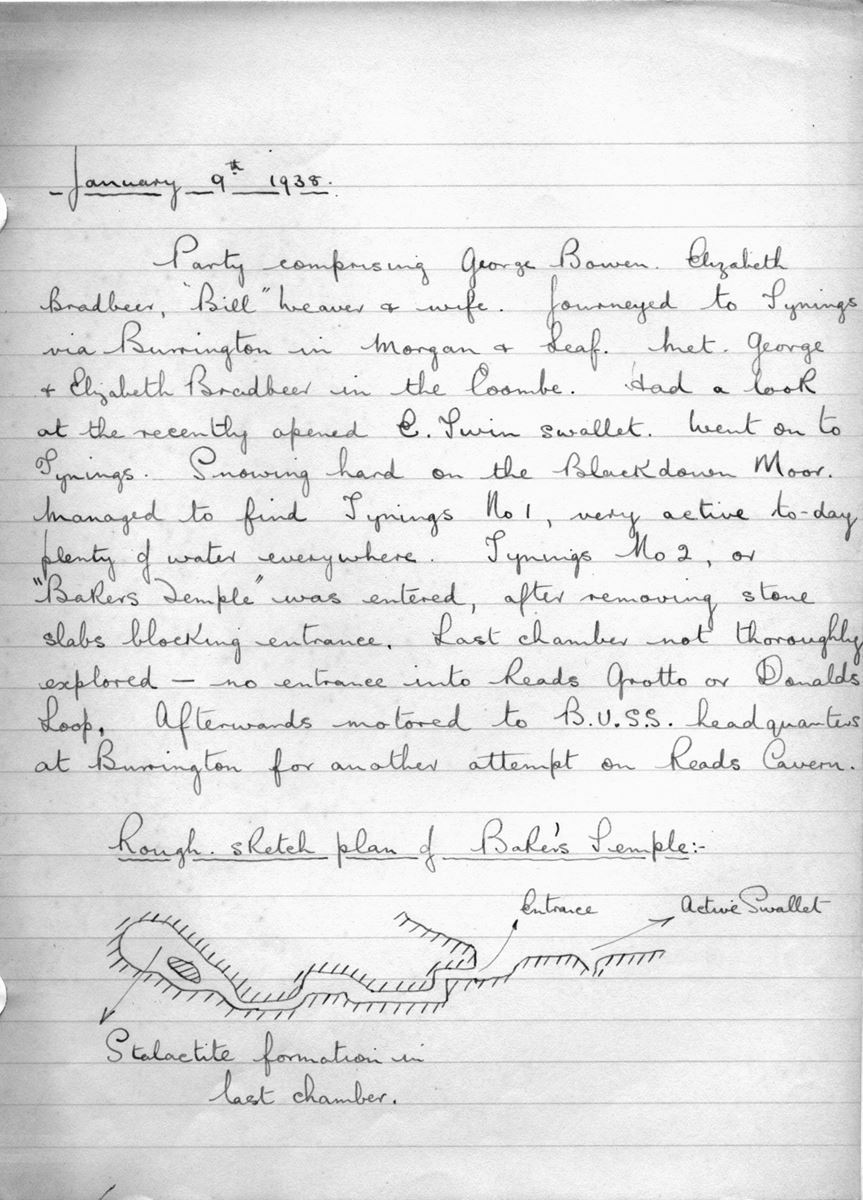 January 9th 1938.
Party comprising George Bowen. Elizabeth
Bradbeer, "Bill" Weaver & wife. Journeyed to Tynings
via Burrington in Morgan & Leaf. Met. George
& Elizabeth Bradbeer in the Coombe. Had a look
at the recently opened E. Twin swallet. Went on to
Tynings. Snowing hard on the Blackdown Moor.
Managed to find Tynings No 1, very active to-day
plenty of water everywhere. Tynings No 2, or
"Bakers Temple" was entered, after removing stone
slabs blocking entrance. Last chamber not thoroughly
explored — no entrance into Reads Grotto or Donalds
Loop. Afterwards motored to B.U.S.S. headquarters
at Burrington for another attempt on Reads Cavern.
Rough sketch plan of Baker's Temple:-
Entrance
Active Swallet
Stalactite formation in
last chamber.